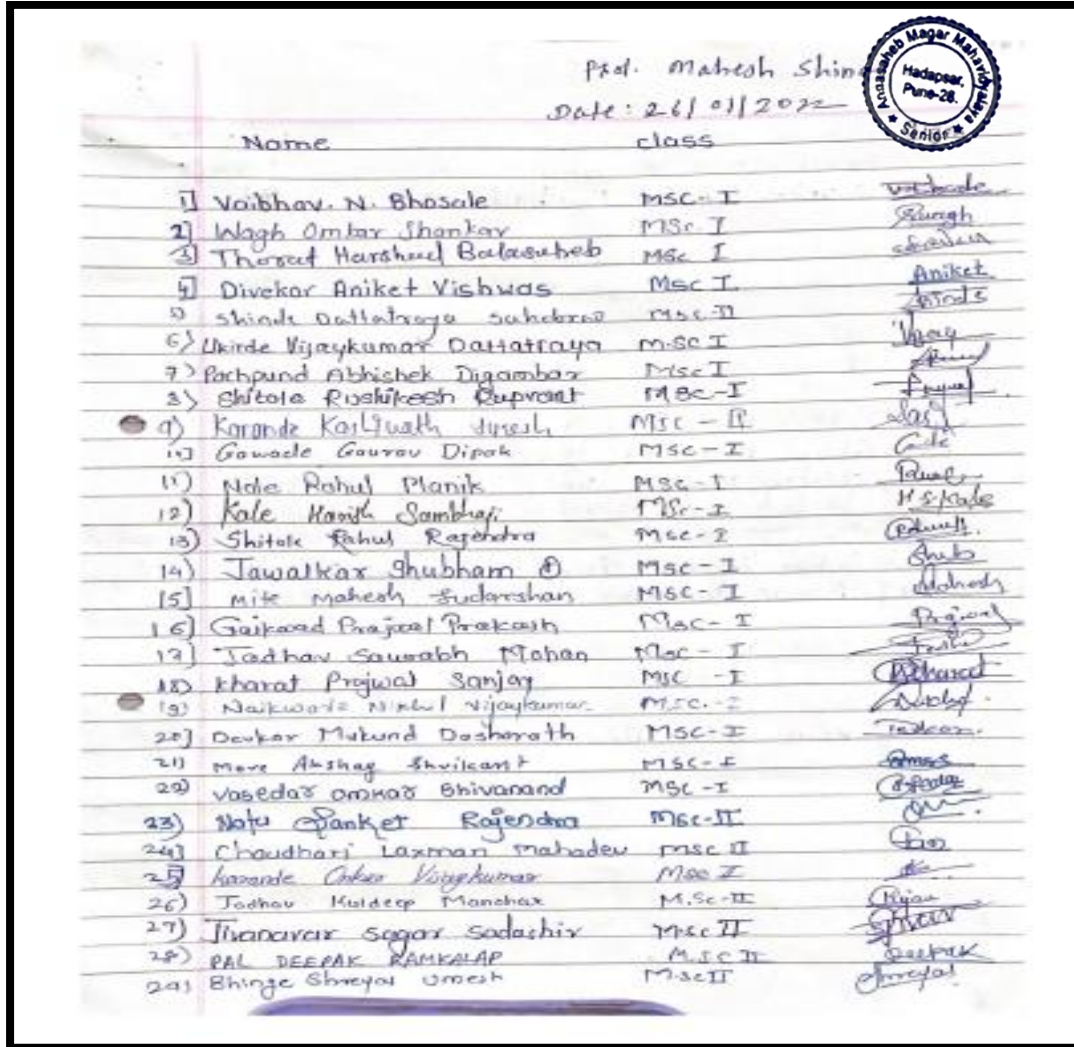 Prof. Mahesh Shin
Annasaheb Magar Mahavidyalaya
Hadapsar,
Pune-28.
Senior
Date: 26/01/2022
Name class
1] Vaibhav. N. Bhosale MSC-I
2] Wagh Omkar Shankar MSc I
3] Thorat Harshad Balasaheb MSc I
4] Divekar Aniket Vishwas Msc I Aniket
5) Shinde Dattatraya Sahebrao Msc-II Shinde
6) Ukirde Vijaykumar Dattatraya M.SC I Vijay
7) Pachpund Abhishek Digambar Msc I
8) Shitole Rushikesh MSC-I
9) Karande Suresh MSc - II
10] Gawade Gaurav Dipak MSC-I
11) Nale Rahul Manik MSC-I
12) Kale Sambhaji MSc-I H S Kale
13) Shitole Rahul Rajendra Msc-I
14) Jawalkar Shubham MSC-I Shub
15] Mahesh Sudarshan MSC-I Mahesh
16] Gaikwad Prajwal Prakash MSC-I
17] Jadhav Saurabh Mohan MSC-I
18) Kharat Prajwal Sanjay MSC -I Kharat
19) Vijaykumar M.SC.-I
20] Devkar Mukund Dasharath MSC-I
21) More Akshay Shrikant MSC-I
22) Vasedar Omkar Shivanand MSC-I
23) Natu Sanket Rajendra MSC-II
24] Chaudhari Laxman Mahadev MSC II
25] Karande Vijaykumar Msc I
26) Jadhav Kuldeep Manohar M.Sc-II
27) Jivanavar Sagar Sadashiv MSC II
28) PAL DEEPAK RAMKALAP M.SC II Deepak
29) Bhinge Shreyas Umesh M.SC II Shreyas